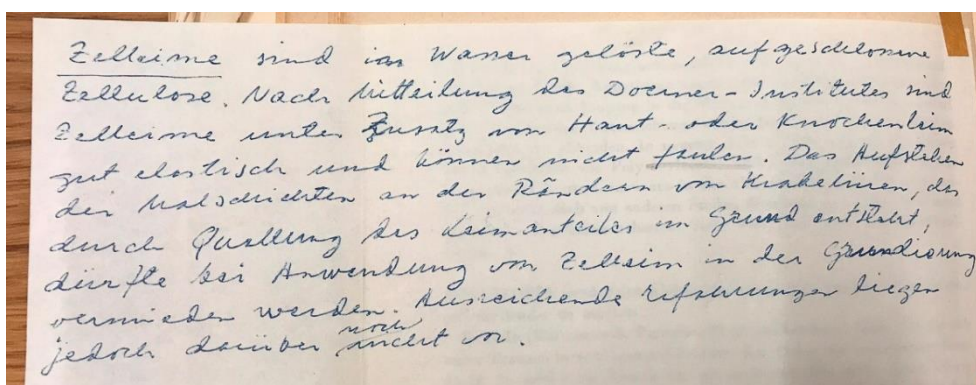 Zelleime sind in Wasser gelöste, aufgeschlossene
Zellulose. Nach Mitteilung des Doerner-Institutes sind
Zelleime unter Zusatz von Haut- oder Knochenleim
gut elastisch und können nicht faulen. Das Aufstehen
der Malschichten an den Rändern von Krakelüren, das
durch Quellung des Leimanteiles im Grund entsteht,
dürfte bei Anwendung von Zelleim in der Grundierung
vermieden werden. Ausreichende Erfahrungen liegen
jedoch darüber noch nicht vor.